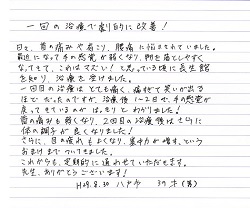 一回の治療で劇的に改善!
日々、首の痛みや肩こり、腰痛に悩まされていました。
最近になって手の感覚が弱くなり、物を落としやすく
なってきて、これはマズい!と思っている頃に長生館
を知り、治療を受けました。
一回目の治療はとても痛く、痛すぎて笑いが出る
ほどだったのですが、治療後1~2日で、手の感覚が
戻ってきているのがはっきりとわかりました!
首の痛みも弱くなり、2回目の治療後はさらに
体の調子が良くなりました!
さらに、目の疲れもよくなり、集中力が増す、という
おまけまでついてきました。
これからも、定期的に通わせていただきます。
先生、ありがとうございます!
H28.8.30 八戸市 39才(男)